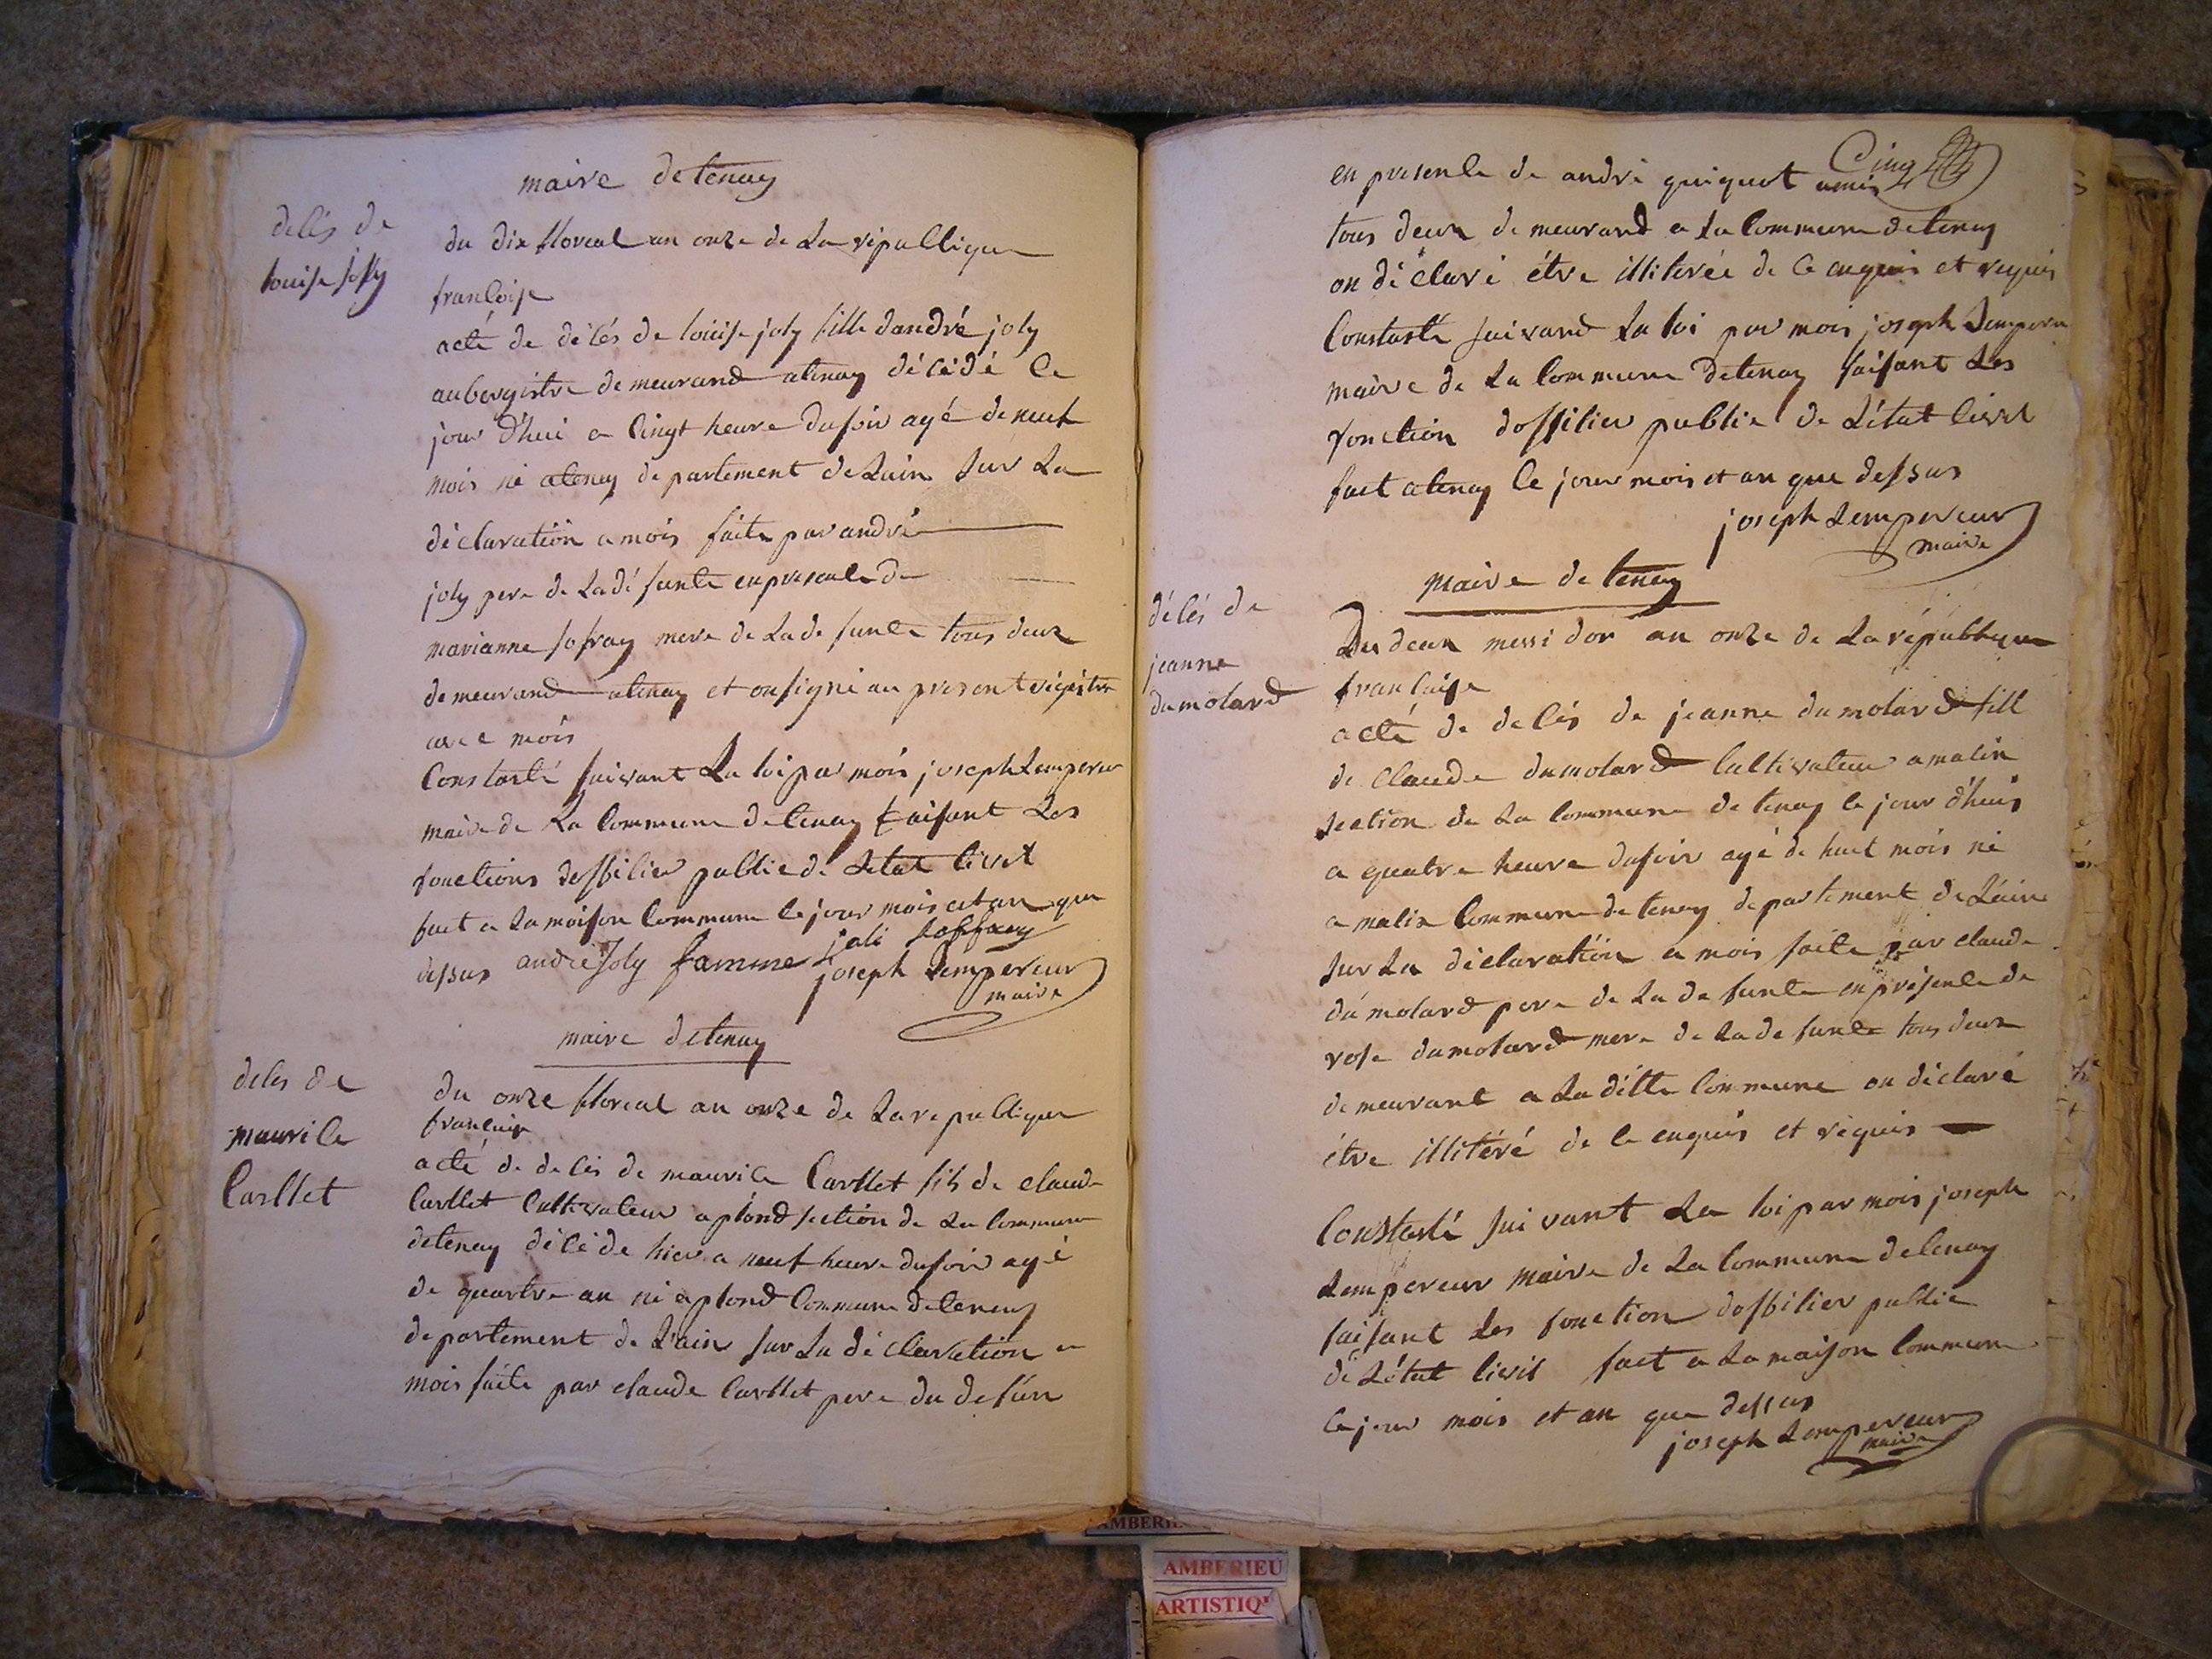 maire de tenay
delés de
louise joly
du dix floreal an onze de La républlique
francoise
acté de délés de louise joly fille dandré joly
aubergistre demeurand atenay décédé le
jour d'hui a cingt heure dusoir agé de neuf
mois né atenay departement de Lain sur La
déclaration amois faite par andré
joly pere de Ladéfunte enpresence de
marianne jofray mere de Ladefunte tous deux
demeurand atenay et onsigné au present régistre
avec mois
Constasté suivant La loi par mois joseph Lempereur
maire de La Commune detenay faisant Les
fonctions dofficier publlic dé Letat civil
fact a La maison Commune le jour mois et an que
dessus andré Joly famme joli Joffray
joseph Lempereur
maire
maire detenay
deles de
maurile
Carllet
du onze floreal an onze de La republlique
francaise
acté de delés de maurice Carllet fils de claude
Carllet Culltivateur aplond section de La Commune
detenay décéde hier a neuf heure dusoir agé
de quartre an né aplond Commune detenay
departement de Lain sur La déclaration a
mois faite par claude Carllet pere du defun
Cinq
en presence de andré quiquet amis
tous deux demeurand a La Commune detenay
on déclaré étre illiterée de ce enquis et requis
Constasté suivand La loi par mois joseph Lempereur
maire de La Commune detenay faisant Les
fonction dofficier publlic de Létat civil
fact atenay le jour mois et an que dessus
joseph Lempereur
maire
Maire de tenay
délés de
jeanne
dumolard
Du deux messidor an onze de La républlique
francaise
acté de delés de jeanne dumolard fill
de claude dumolard Cultivateur amalix
section de La Commune de tenay le jour d'huis
a quatre heure dusoir agé de huit mois né
a malix Commune detenay departement de Lain
sur La déclaration a mois faite par claude
dumolard pere de La defunte en présence de
rose dumolard mere de La defunte tous deux
demeurant a La ditte Commune on déclaré
étre illitéré de ce enquis et requis
Constasté suivant La loi par mois joseph
Lempereur maire de La Commune detenay
faisant Les fonction dofficier publlic
dé Létat civil fact a La maison Commune
le jour mois et an que dessus
joseph Lempereur
maire
AMBERIEU
ARTISTIQ